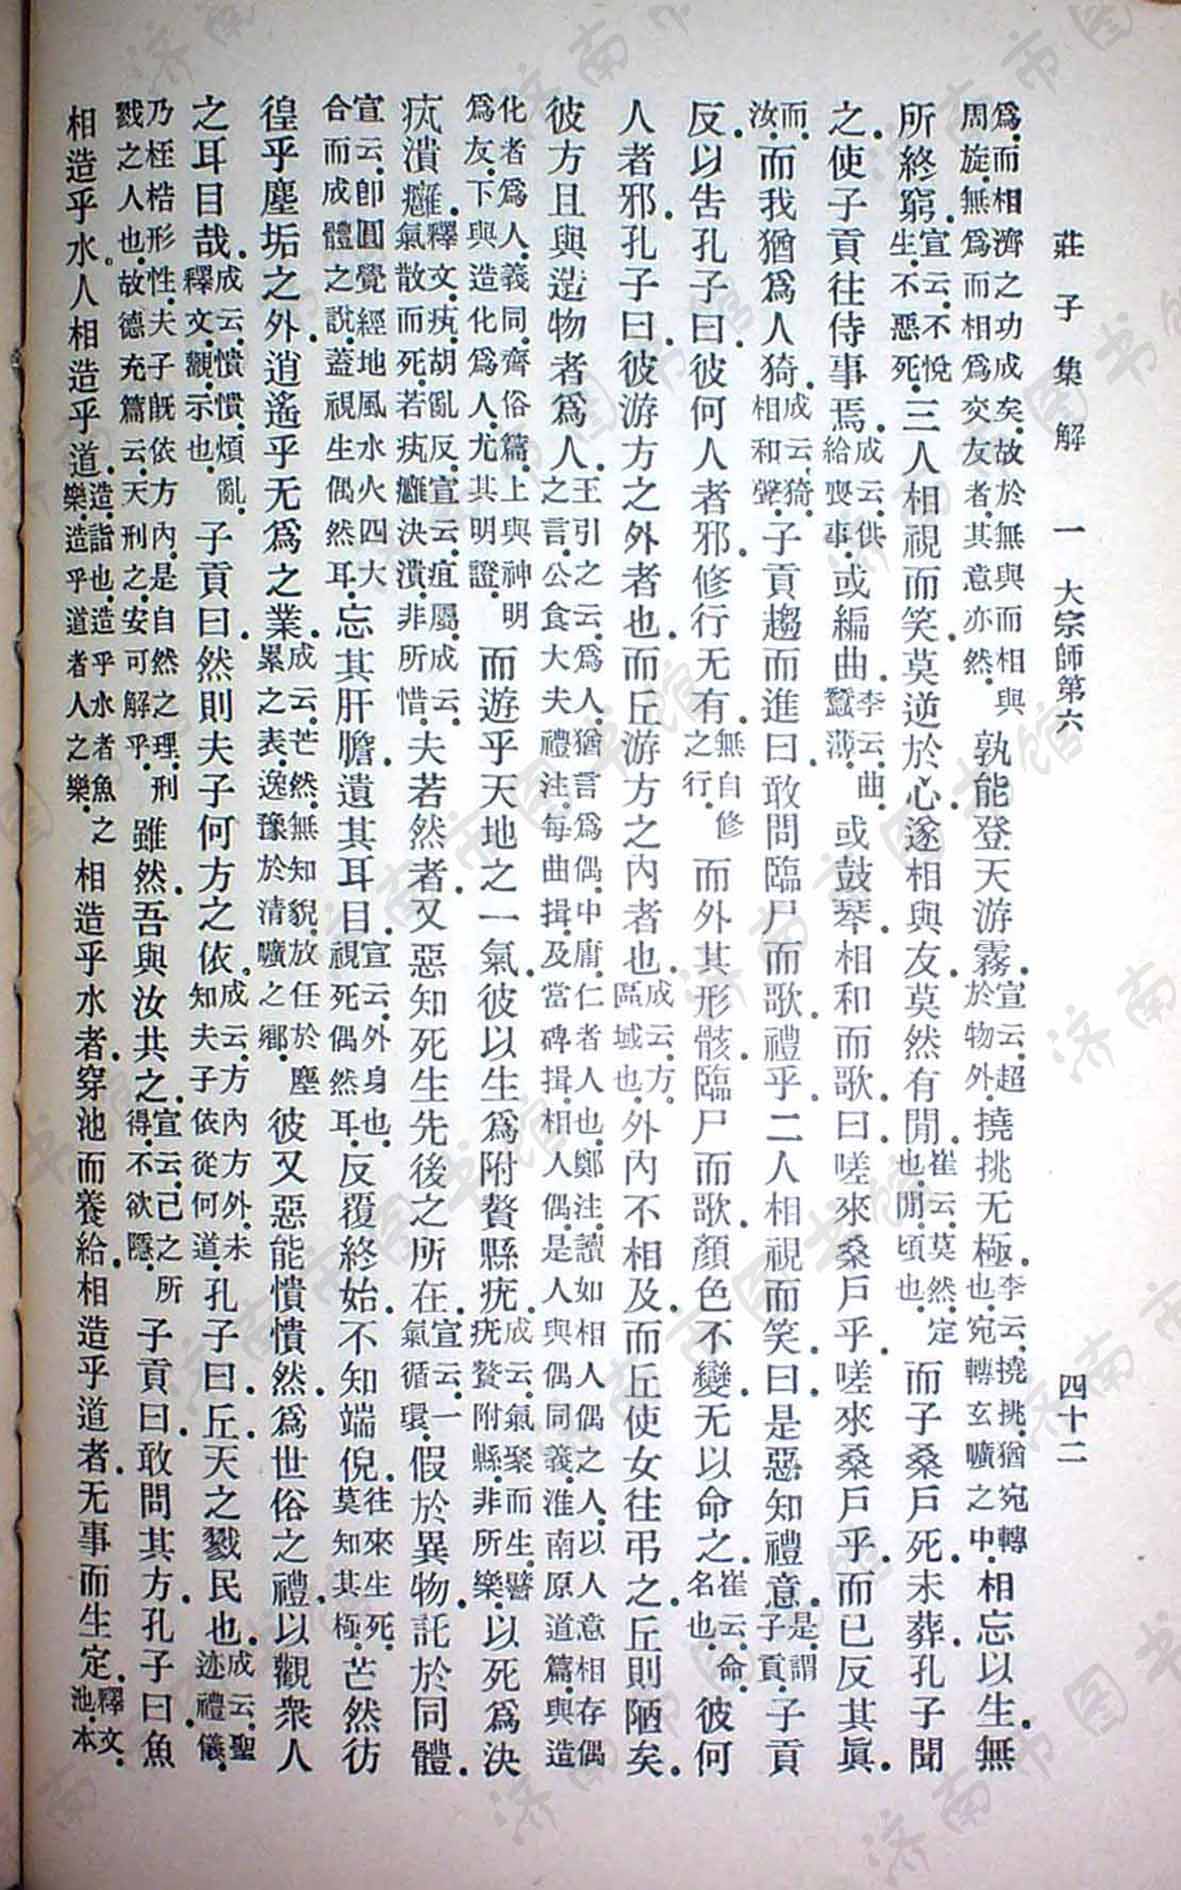 莊子集解 一 大宗師第六 四十二
爲.而相濟之功成矣.故於無與而相與周旋.無爲而相爲.交友者.其意亦然.孰能登天游霧.宣云.超於物外.撓挑无極.李云.撓挑.猶宛轉也.宛轉玄曠之中.相忘以生.無
所終窮.宣云.不悅生.不惡死.三人相視而笑.莫逆於心.遂相與友.莫然有閒.崔云.莫然.定也.閒.頃也.而子桑戶死.未葬.孔子聞
之.使子貢往侍事焉.成云.供給喪事.或編曲.李云.曲.蠶薄.或鼓琴.相和而歌曰.嗟來桑戶乎.嗟來桑戶乎.而已反其眞.
而.汝.而我猶爲人猗.成云.猗.相和聲.子貢趨而進曰.敢問臨尸而歌.禮乎.二人相視而笑.曰.是惡知禮意.是.謂子貢.子貢
反.以告孔子曰.彼何人者邪.修行无有.無自修之行.而外其形骸.臨尸而歌.顏色不變.无以命之.崔云.命.名也.彼何
人者邪.孔子曰.彼游方之外者也.而丘游方之內者也.成云.方.區域也.外內不相及.而丘使女往弔之.丘則陋矣.
彼方且與造物者爲人.王引之云.爲人.猶言爲偶.中庸.仁者人也.鄭注.讀如相人偶之人.以人意相存偶之言.公食大夫禮注.每曲揖.及當碑揖.相人偶.是人與偶同義.淮南原道篇.與造
化者爲人.義同.齊俗篇.上與神明爲友.下與造化爲人.尤其明證.而遊乎天地之一氣.彼以生爲附贅縣疣.成云.氣聚而生.譬疣贅附縣.非所樂.以死爲決
𤴯潰癰.釋文.𤴯.胡亂反.宣云.疽屬.成云.氣散而死.若𤴯癰決潰.非所惜.夫若然者.又惡知死生先後之所在.宣云.一氣循環.假於異物.託於同體.
宣云.卽圓覺經地風水火四大合而成體之說.蓋視生偶然耳.忘其肝膽.遺其耳目.宣云.外身也.視死偶然耳.反覆終始.不知端倪.往來生死.莫知其極.芒然彷
徨乎塵垢之外.逍遙乎无爲之業.成云.芒然.無知貌.放任於塵累之表.逸豫於清曠之鄉.彼又惡能憒憒然.爲世俗之禮.以觀衆人
之耳目哉.成云.憒憒.煩亂.釋文.觀.示也.子貢曰.然則夫子何方之依.成云.方內方外.未知夫子依從何道.孔子曰.丘.天之戮民也.成云.聖迹禮儀.
乃桎梏形性.夫子旣依方內.是自然之理.刑戮之人也.故德充篇云.天刑之.安可解乎.雖然.吾與汝共之.宣云.己之所得.不欲隱.子貢曰.敢問其方.孔子曰.魚
相造乎水.人相造乎道.造.詣也.造乎水者魚之樂.造乎道者人之樂.相造乎水者.穿池而養給.相造乎道者.无事而生定.釋文.池.本
济南市图书馆